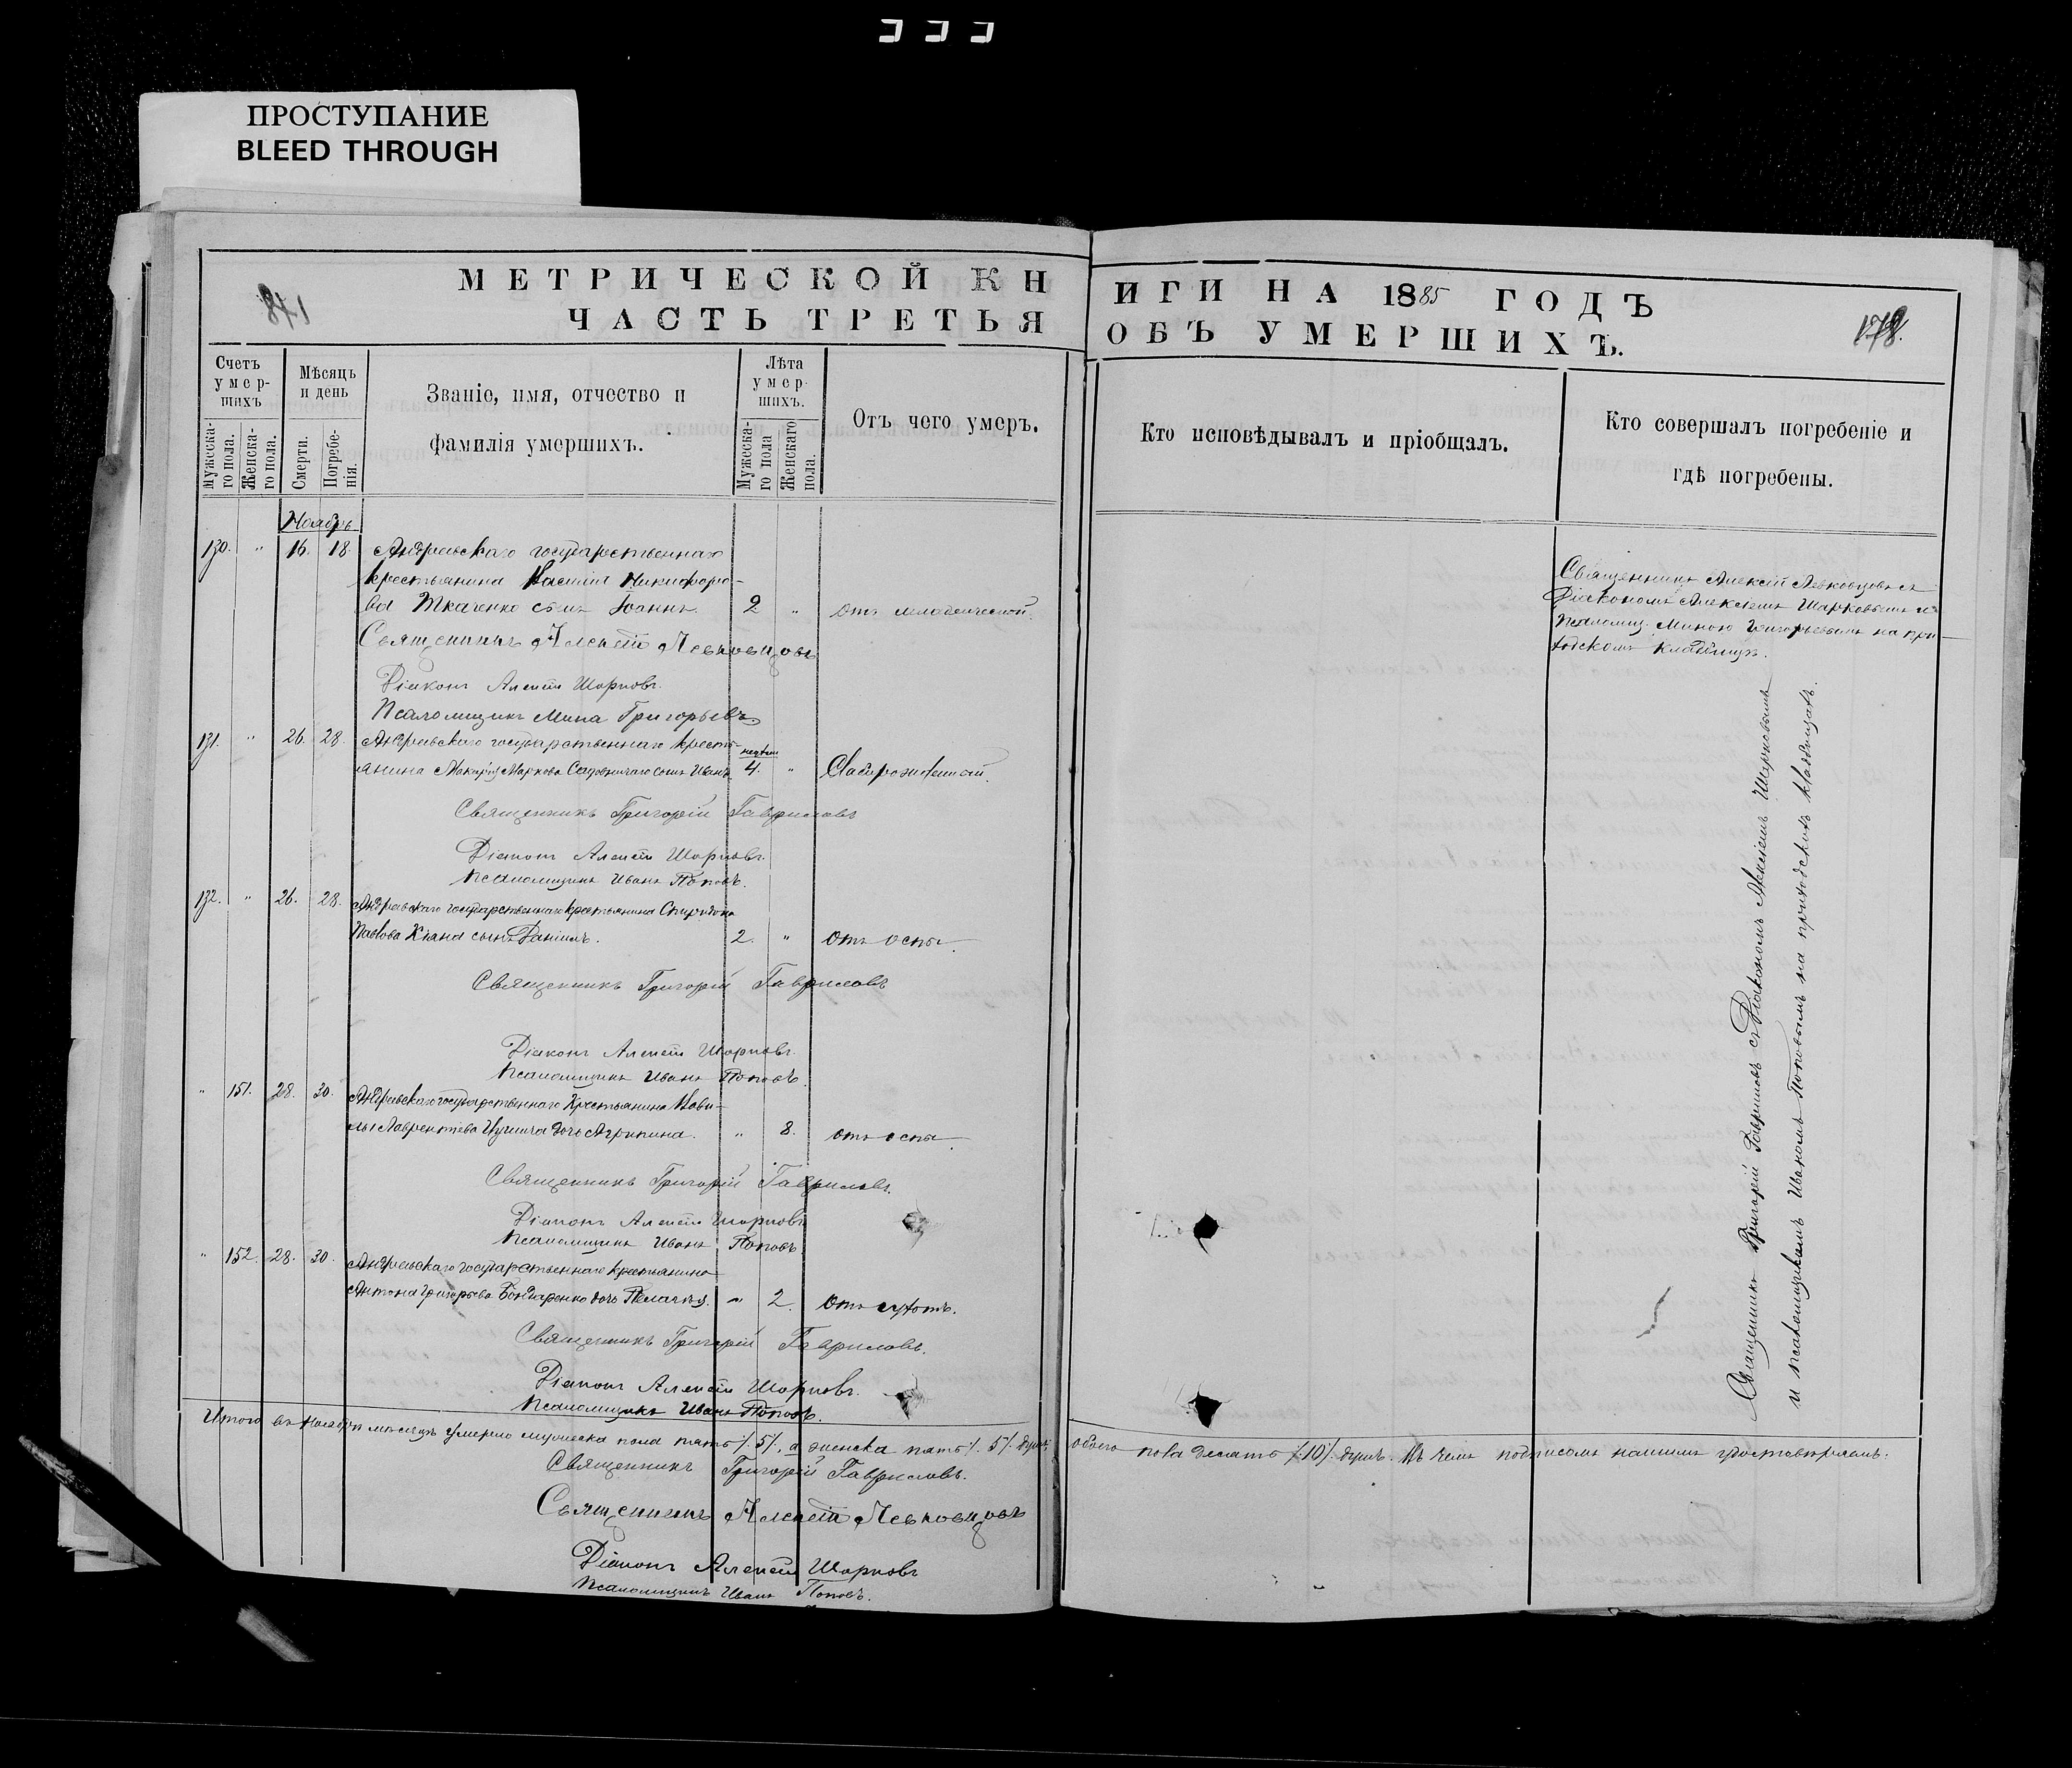 ПРОСТУПАНИЕ
BLEED THROUGH
МЕТРИЧЕСКОЙ КНИГИ НА 1885 ГОДЪ
ЧАСТЬ ТРЕТЬЯ ОБЪ УМЕРШИХЪ.
841
178.
Счетъ умер-шихъ
Мужеска-го пола.
Женска-го пола.
Мѣсяцъ и день
Смерти.
Погребе-нія.
Званіе, имя, отчество и
фамилія умершихъ.
Лѣта умер-шихъ.
Мужеска-го пола
Женскаго пола.
Отъ чего умеръ.
Кто исповѣдывалъ и пріобщалъ.
Кто совершалъ погребеніе и
гдѣ погребены.
Ноябрь
130. " 16. 18. Андреевскаго государственнаго
крестьянина Василія Никифоро-
ва Ткаченко сынъ Іоаннъ. 2 " отъ младенческой.
Священникъ Алексѣй Левковцовъ
Діаконъ Алексѣй Шарковъ.
Псаломщикъ Мина Григорьевъ
131. " 26. 28. Андреевскаго государственнаго кресть-
янина Макарія Маркова Садовничаго сынъ Иванъ недѣли 4. " Слаборожденный.
Священникъ Григорій Гавриловъ
Діаконъ Алексѣй Шарковъ.
Псаломщикъ Иванъ Поповъ.
132. " 26. 28. Андреевскаго государственнаго крестьянина Спиридона
Павлова сынъ Даніилъ. 2. " отъ оспы.
Священникъ Григорій Гавриловъ
Діаконъ Алексѣй Шарковъ.
Псаломщикъ Иванъ Поповъ.
" 151. 28. 30. Андреевскаго государственнаго крестьянина Сави-
Лаврентіева дочь Агрипина. " 8. отъ оспы.
Священникъ Григорій Гавриловъ.
Діаконъ Алексѣй Шарковъ
Псаломщикъ Иванъ Поповъ
" 152. 28. 30. Андреевскаго государственнаго крестьянина
Антона Григорьева Бондаренко дочь Пелагія. " 2. отъ сухотъ.
Священникъ Григорій Гавриловъ.
Діаконъ Алексѣй Шарковъ.
Псаломщикъ Иванъ Поповъ.
Священникъ Алексѣй Левковцовъ съ
Діакономъ Алексѣемъ Шарковымъ и
псаломщ. Миною Григорьевымъ на при-
ходскомъ кладбищѣ.
Священникъ Григорій Гавриловъ съ Діакономъ Алексѣемъ Шарковымъ
и псаломщикомъ Иваномъ Поповымъ на приходскомъ кладбищѣ.
Итого въ Ноябрѣ мѣсяцѣ умерло мужеска пола пять /. 5 /. а женска пять /. 5 /. душъ, обоего пола десять /. 10 /. душъ. Въ чемъ подписомъ нашимъ удостовѣряемъ.
Священникъ Григорій Гавриловъ.
Священникъ Алексѣй Левковцовъ
Діаконъ Алексѣй Шарковъ
Псаломщикъ Иванъ Поповъ.